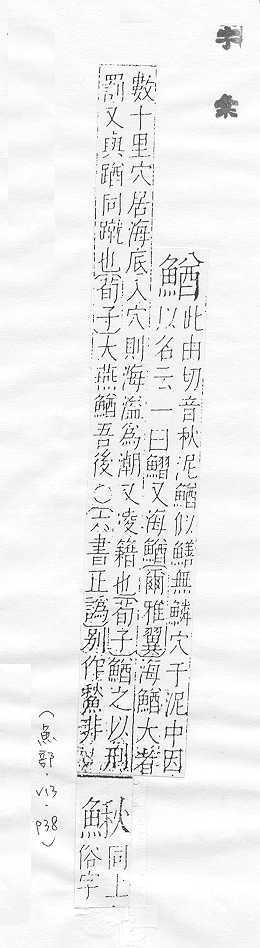 字彙
鰌
此由切音秋泥鰌似鱔無鱗穴于泥中因
以名云一曰鰼又海鰌(爾雅翼)海鰌大者
數十里穴居海底入穴則海溢為潮又凌籍也(荀子)鰌之以刑
罰又與蹈同蹴也(荀子)大燕鰌吾後○(六書正譌)別作鰍非
鰍
同上
俗字
(魚部·V13·P38)